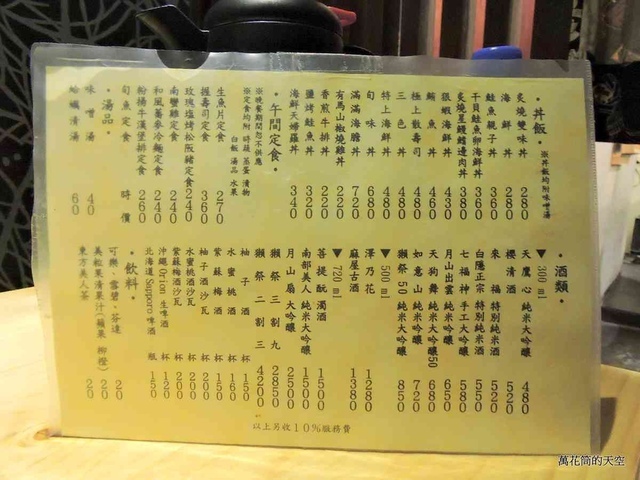 ・丼飯・
※丼飯均附味噌湯
炙燒雙味丼 280
海鮮丼 280
鮭魚親子丼 360
干貝鮭魚卵海鮮丼 360
炙燒星鰻鱔邊肉丼 380
猥蝦海鮮丼 430
鮪魚丼 460
極上散壽司 480
三色丼 480
特上海鮮丼 480
旬味丼 680
滿滿海膽丼 720
有馬山椒燒雞丼 220
香煎牛排丼 220
鹽烤鮭魚丼 320
海鮮天婦羅丼 340
・午間定食・
※晚餐期間恕不供應
※定食均附 時蔬 茶碗蒸 漬物
白飯 湯品 水果
生魚片定食 270
握壽司定食 360
玫瑰塩烤松阪豬定食 240
南蠻雞定食 240
和風蕎麥冷麵定食 240
粉揚牛漢堡排定食 260
旬魚定食 時價
・湯品・
味噌湯 40
蛤蠣清湯 60
・酒類・
▼300 ml
天鷹心 純米大吟釀 480
櫻清酒 520
來福 特別純米酒 520
白隱正宗 特別純米酒 550
七福神 手工大吟釀 580
月山出雲 純米大吟釀 650
天狗舞 純米大吟釀50 680
如意山 純米大吟釀 720
獺祭 50 純米大吟釀 850
▼500 ml
澤乃花 1280
麻屋古酒 1380
▼720 ml
菩提酛濁酒 1500
南部美人 純米大吟釀 1500
月山扇 大吟釀 2500
獺祭 三割九 2850
獺祭 二割三 4200
柚子酒 杯 150
水蜜桃酒 杯 160
紫蘇梅酒 杯 150
柚子酒沙瓦 杯 200
水蜜桃酒沙瓦 杯 200
紫蘇梅酒沙瓦 杯 200
沖繩 Orion 生啤酒 杯 120
北海道 Sapporo 啤酒 瓶 150
・飲料・
可樂、雪碧、芬達 20
美粒果清果汁(蘋果 柳橙) 20
東方美人茶 20
以上另收10%服務費
萬花筒的天空